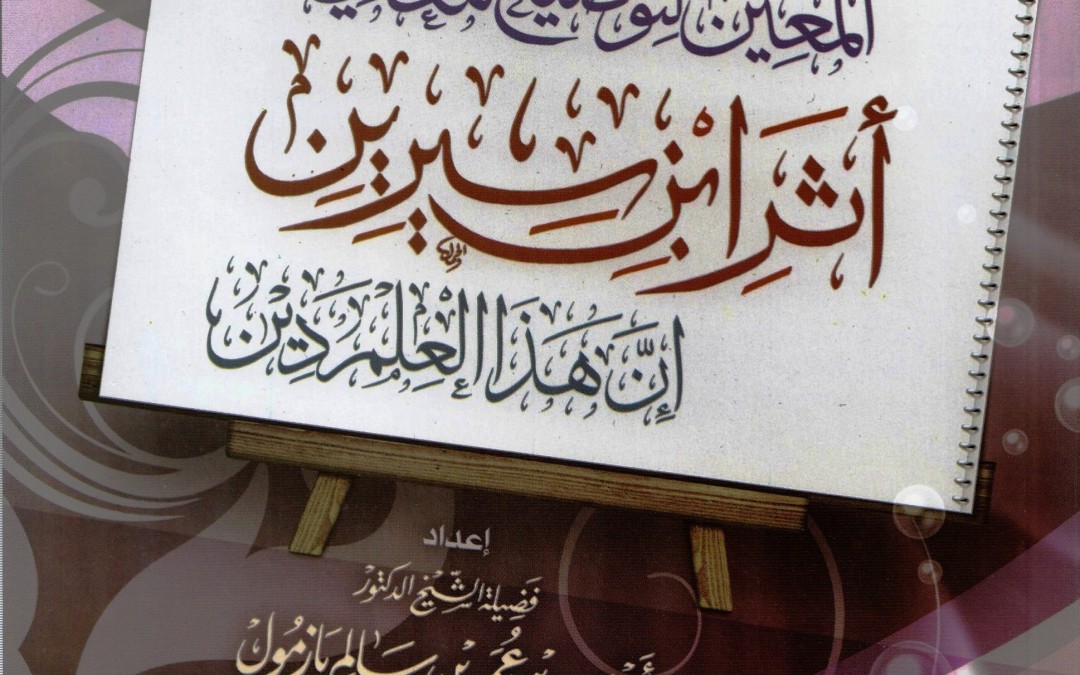 المعين لتوضيح
أَثَرِ ابْنِ سِيرِين
إِنَّ هَذَا الْعِلْمَ دِيْنٌ
إعداد
فَضِيلَة الشَّيْخ الدكتور
بْن عُمَر بْن سَالِم بَازمُول